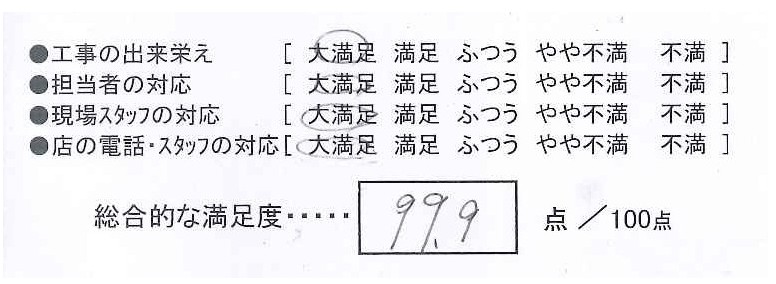 ●工事の出来栄え [ 大満足 満足 ふつう やや不満 不満 ]
●担当者の対応 [ 大満足 満足 ふつう やや不満 不満 ]
●現場スタッフの対応 [ 大満足 満足 ふつう やや不満 不満 ]
●店の電話・スタッフの対応 [ 大満足 満足 ふつう やや不満 不満 ]
総合的な満足度‥‥‥ 99.9 点 ／100点